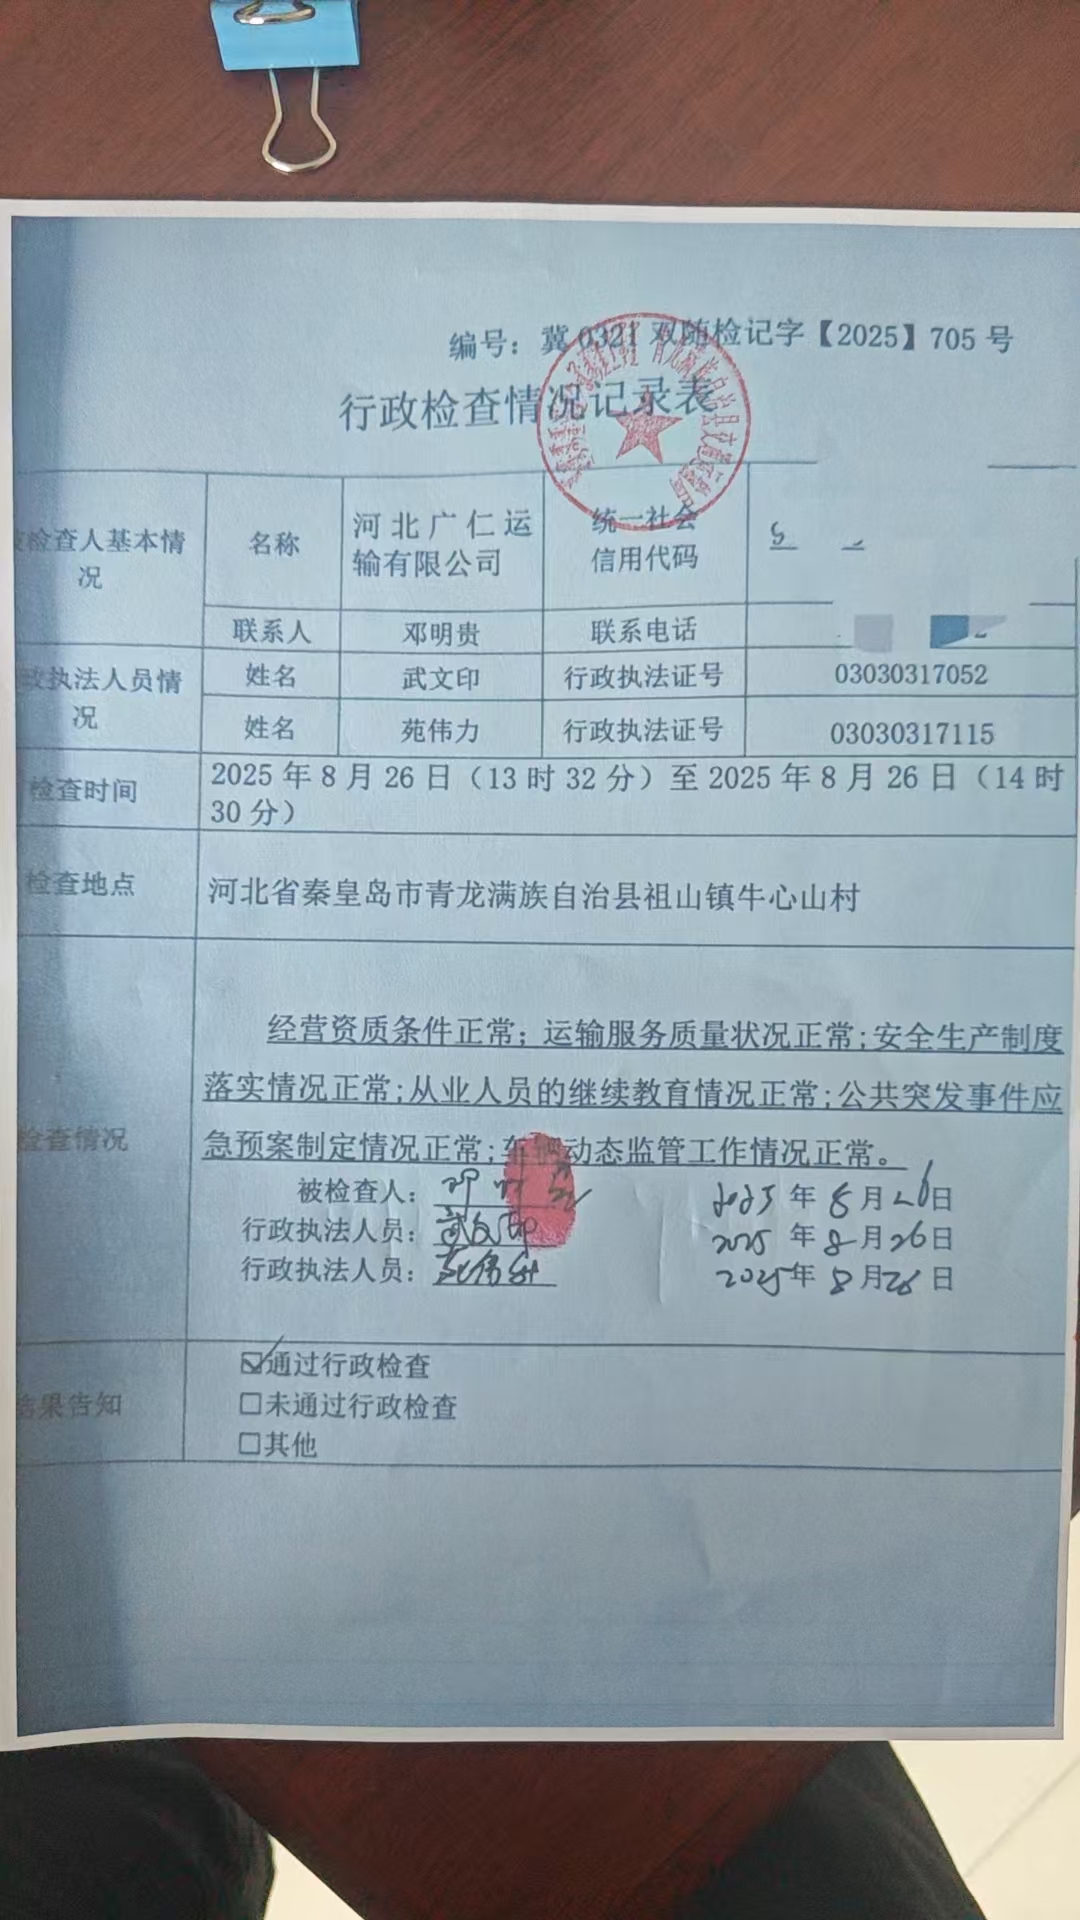 编号：冀 0321 双随检记字【2025】705 号
行政检查情况记录表
检查人基本情况
名称
河北广仁运输有限公司
统一社会信用代码
联系人
邓明贵
联系电话
政执法人员情况
姓名
武文印
行政执法证号
03030317052
姓名
苑伟力
行政执法证号
03030317115
检查时间
2025 年 8 月 26 日（13 时 32 分）至 2025 年 8 月 26 日（14 时
30 分）
检查地点
河北省秦皇岛市青龙满族自治县祖山镇牛心山村
检查情况
经营资质条件正常；运输服务质量状况正常;安全生产制度
落实情况正常;从业人员的继续教育情况正常;公共突发事件应
急预案制定情况正常;车辆动态监管工作情况正常。
被检查人：邓明贵 2025 年 8 月 26 日
行政执法人员：武文印 2025 年 8 月 26 日
行政执法人员：苑伟力 2025 年 8 月 26 日
结果告知
☑通过行政检查
□未通过行政检查
□其他